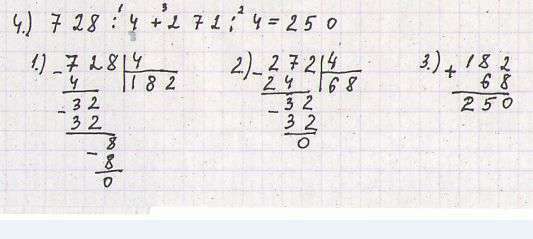 4.) 728 : 4 + 272 : 4 = 250
1 3 2
1.) - 728 | 4
4 182
- 32
32
- 8
8
0
2.) - 272 | 4
24 68
- 32
32
0
3.) + 182
68
250